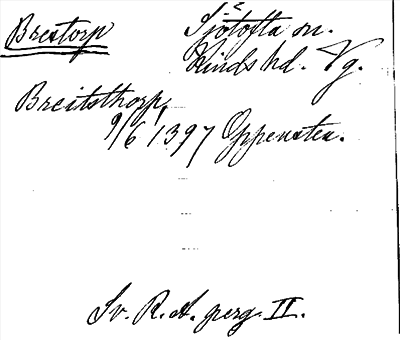 Brestorp Sjötofta sn.
Kinds hd. Vg.
Breitsthorp,
9/6 1397 Oppensten.
Sv. R. A. perg. II.